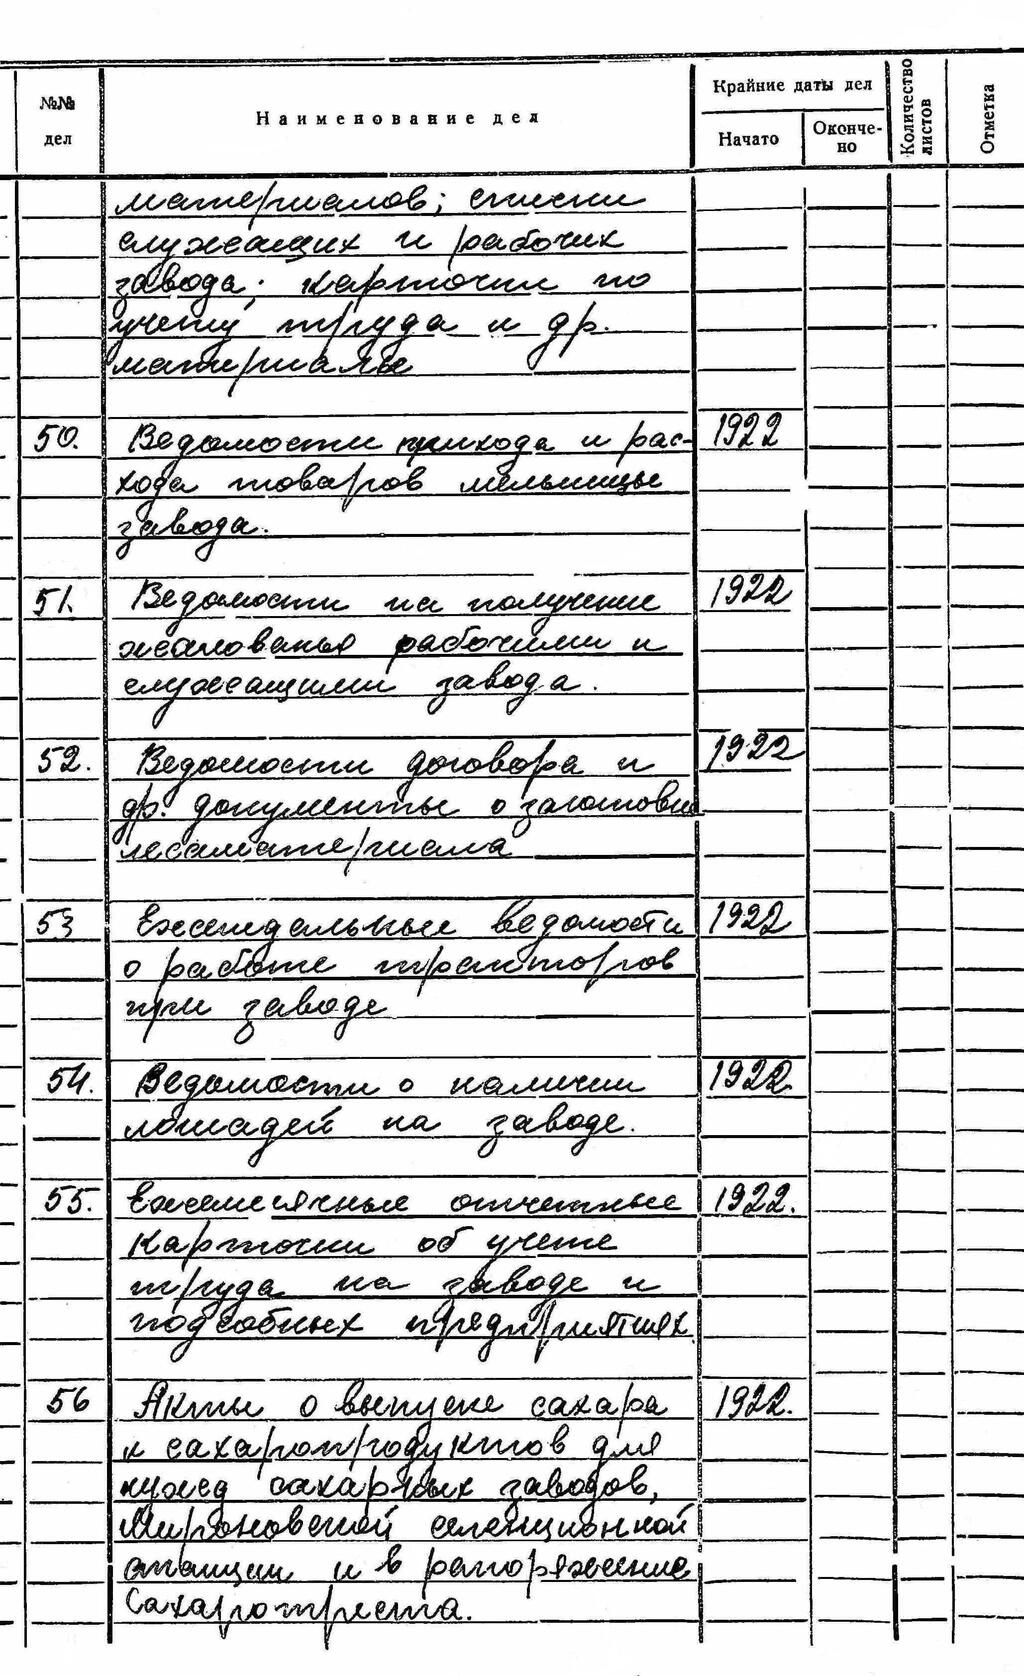 №№ дел
Наименование дел
Крайние даты дел
Начато
Окончено
Количество листов
Отметка
материалов; списки
служащих и рабочих
завода; карточки по
учету труда и др.
материалы
50. Ведомости прихода и рас- 1922
хода товаров мельницы
завода.
51. Ведомости на получение 1922
жалованья рабочими и
служащими завода.
52. Ведомости договора и 1922
др. документы о заготовке
лесаматериала
53 Еженедельные ведомости 1922
о работе тракторов
при заводе
54. Ведомости о наличии 1922.
лошадей на заводе.
55. Ежемесячные отчетные 1922.
карточки об учете
труда на заводе и
подсобных предприятиях
56 Акты о выпуске сахара 1922.
и сахаропродуктов для
нужд сахарных заводов,
Мироновской селекционной
станции и в распоряжение
Сахаротреста.